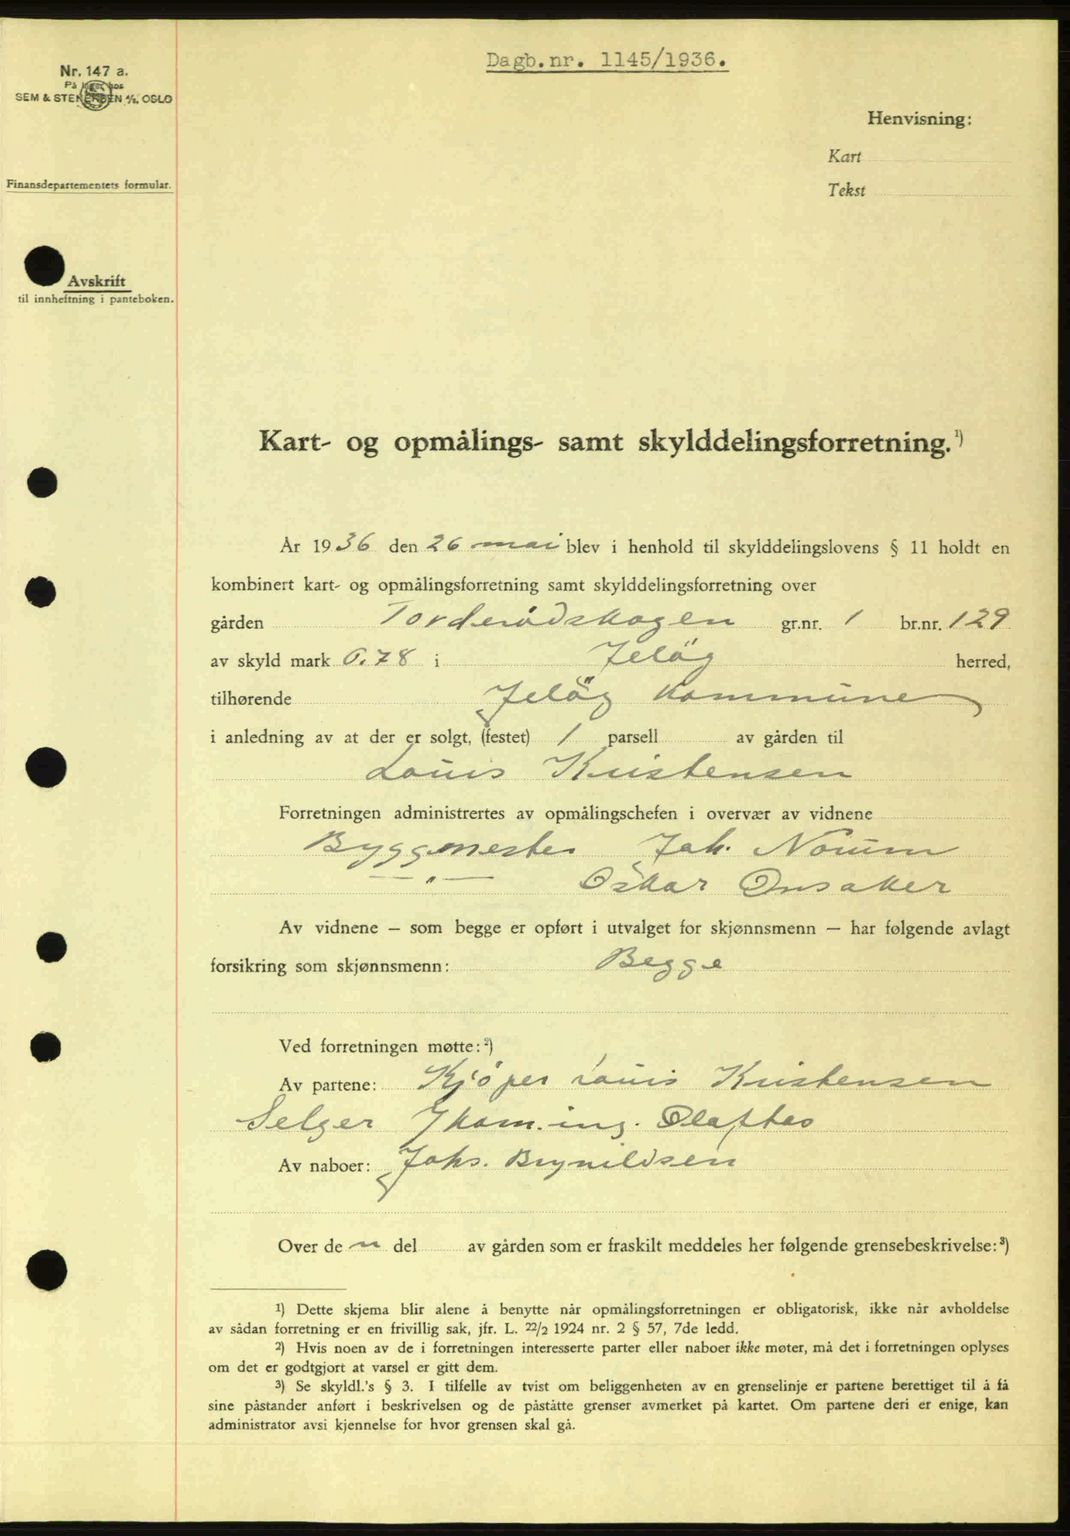 Dagb.nr. 1145/1936.
Nr. 147 a.
På lager hos
SEM & STENERSEN A/S. OSLO
Finansdepartementets formular.
Avskrift
til innheftning i panteboken.
Henvisning:
Kart
Tekst
Kart- og opmålings- samt skylddelingsforretning.¹)
År 1936 den 26 mai blev i henhold til skylddelingslovens § 11 holdt en
kombinert kart- og opmålingsforretning samt skylddelingsforretning over
gården Torderødskogen gr.nr. 1 br.nr. 129
av skyld mark 0.78 i Jeløy herred,
tilhørende Jeløy kommune
i anledning av at der er solgt, (festet) 1 parsell av gården til
Louis Kristensen
Forretningen administrertes av opmålingschefen i overvær av vidnene
Byggmester Joh. Noium
—"— Oskar Onsaker
Av vidnene — som begge er opført i utvalget for skjønnsmenn — har følgende avlagt
forsikring som skjønnsmenn: Begge
Ved forretningen møtte:²)
Av partene: Kjöper Louis Kristensen
Selger kom.ing. Olaftas
Av naboer: Johs. Brynildsen
Over de n del av gården som er fraskilt meddeles her følgende grensebeskrivelse:³)
¹) Dette skjema blir alene å benytte når opmålingsforretningen er obligatorisk, ikke når avholdelse
av sådan forretning er en frivillig sak, jfr. L. 22/2 1924 nr. 2 § 57, 7de ledd.
²) Hvis noen av de i forretningen interesserte parter eller naboer ikke møter, må det i forretningen oplyses
om det er godtgjort at varsel er gitt dem.
³) Se skyldl.'s § 3. I tilfelle av tvist om beliggenheten av en grenselinje er partene berettiget til å få
sine påstander anført i beskrivelsen og de påståtte grenser avmerket på kartet. Om partene deri er enige, kan
administrator avsi kjennelse for hvor grensen skal gå.